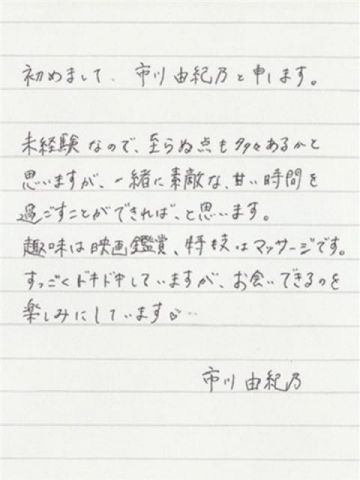 初めまして、市川由紀乃と申します。
未経験なので、至らぬ点も多々あるかと
思いますが、一緒に素敵な、甘い時間を
過ごすことができれば、と思います。
趣味は映画鑑賞、特技はマッサージです。
すっごくドキドキしていますが、お会いできるのを
楽しみにしています
市川由紀乃